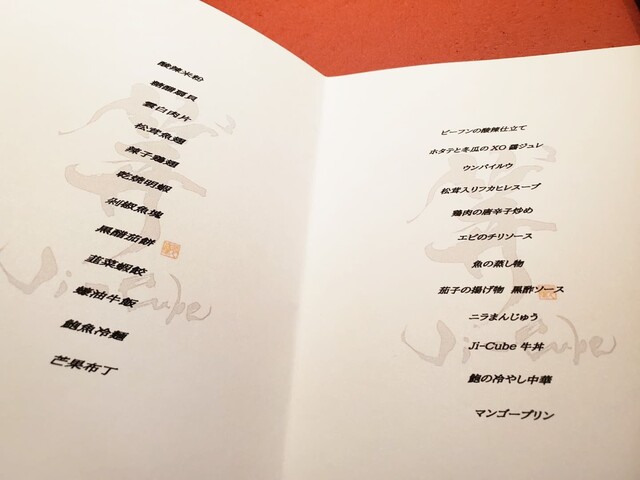 酸辣米粉
醬醋扇貝
雲白肉片
松茸魚翅
辣子鶏翅
乾焼明蝦
剁椒魚塊
黒醋茄餅
韮菜蝦餃
蠔油牛飯
鮑魚冷麺
芒果布丁
Ji-Cube
ビーフンの酸辣仕立て
ホタテと冬瓜のXO醤ジュレ
ウンパイルウ
松茸入りフカヒレスープ
鶏肉の唐辛子炒め
エビのチリソース
魚の蒸し物
茄子の揚げ物 黒酢ソース
ニラまんじゅう
Ji-Cube 牛丼
鮑の冷やし中華
マンゴープリン
Ji-Cube